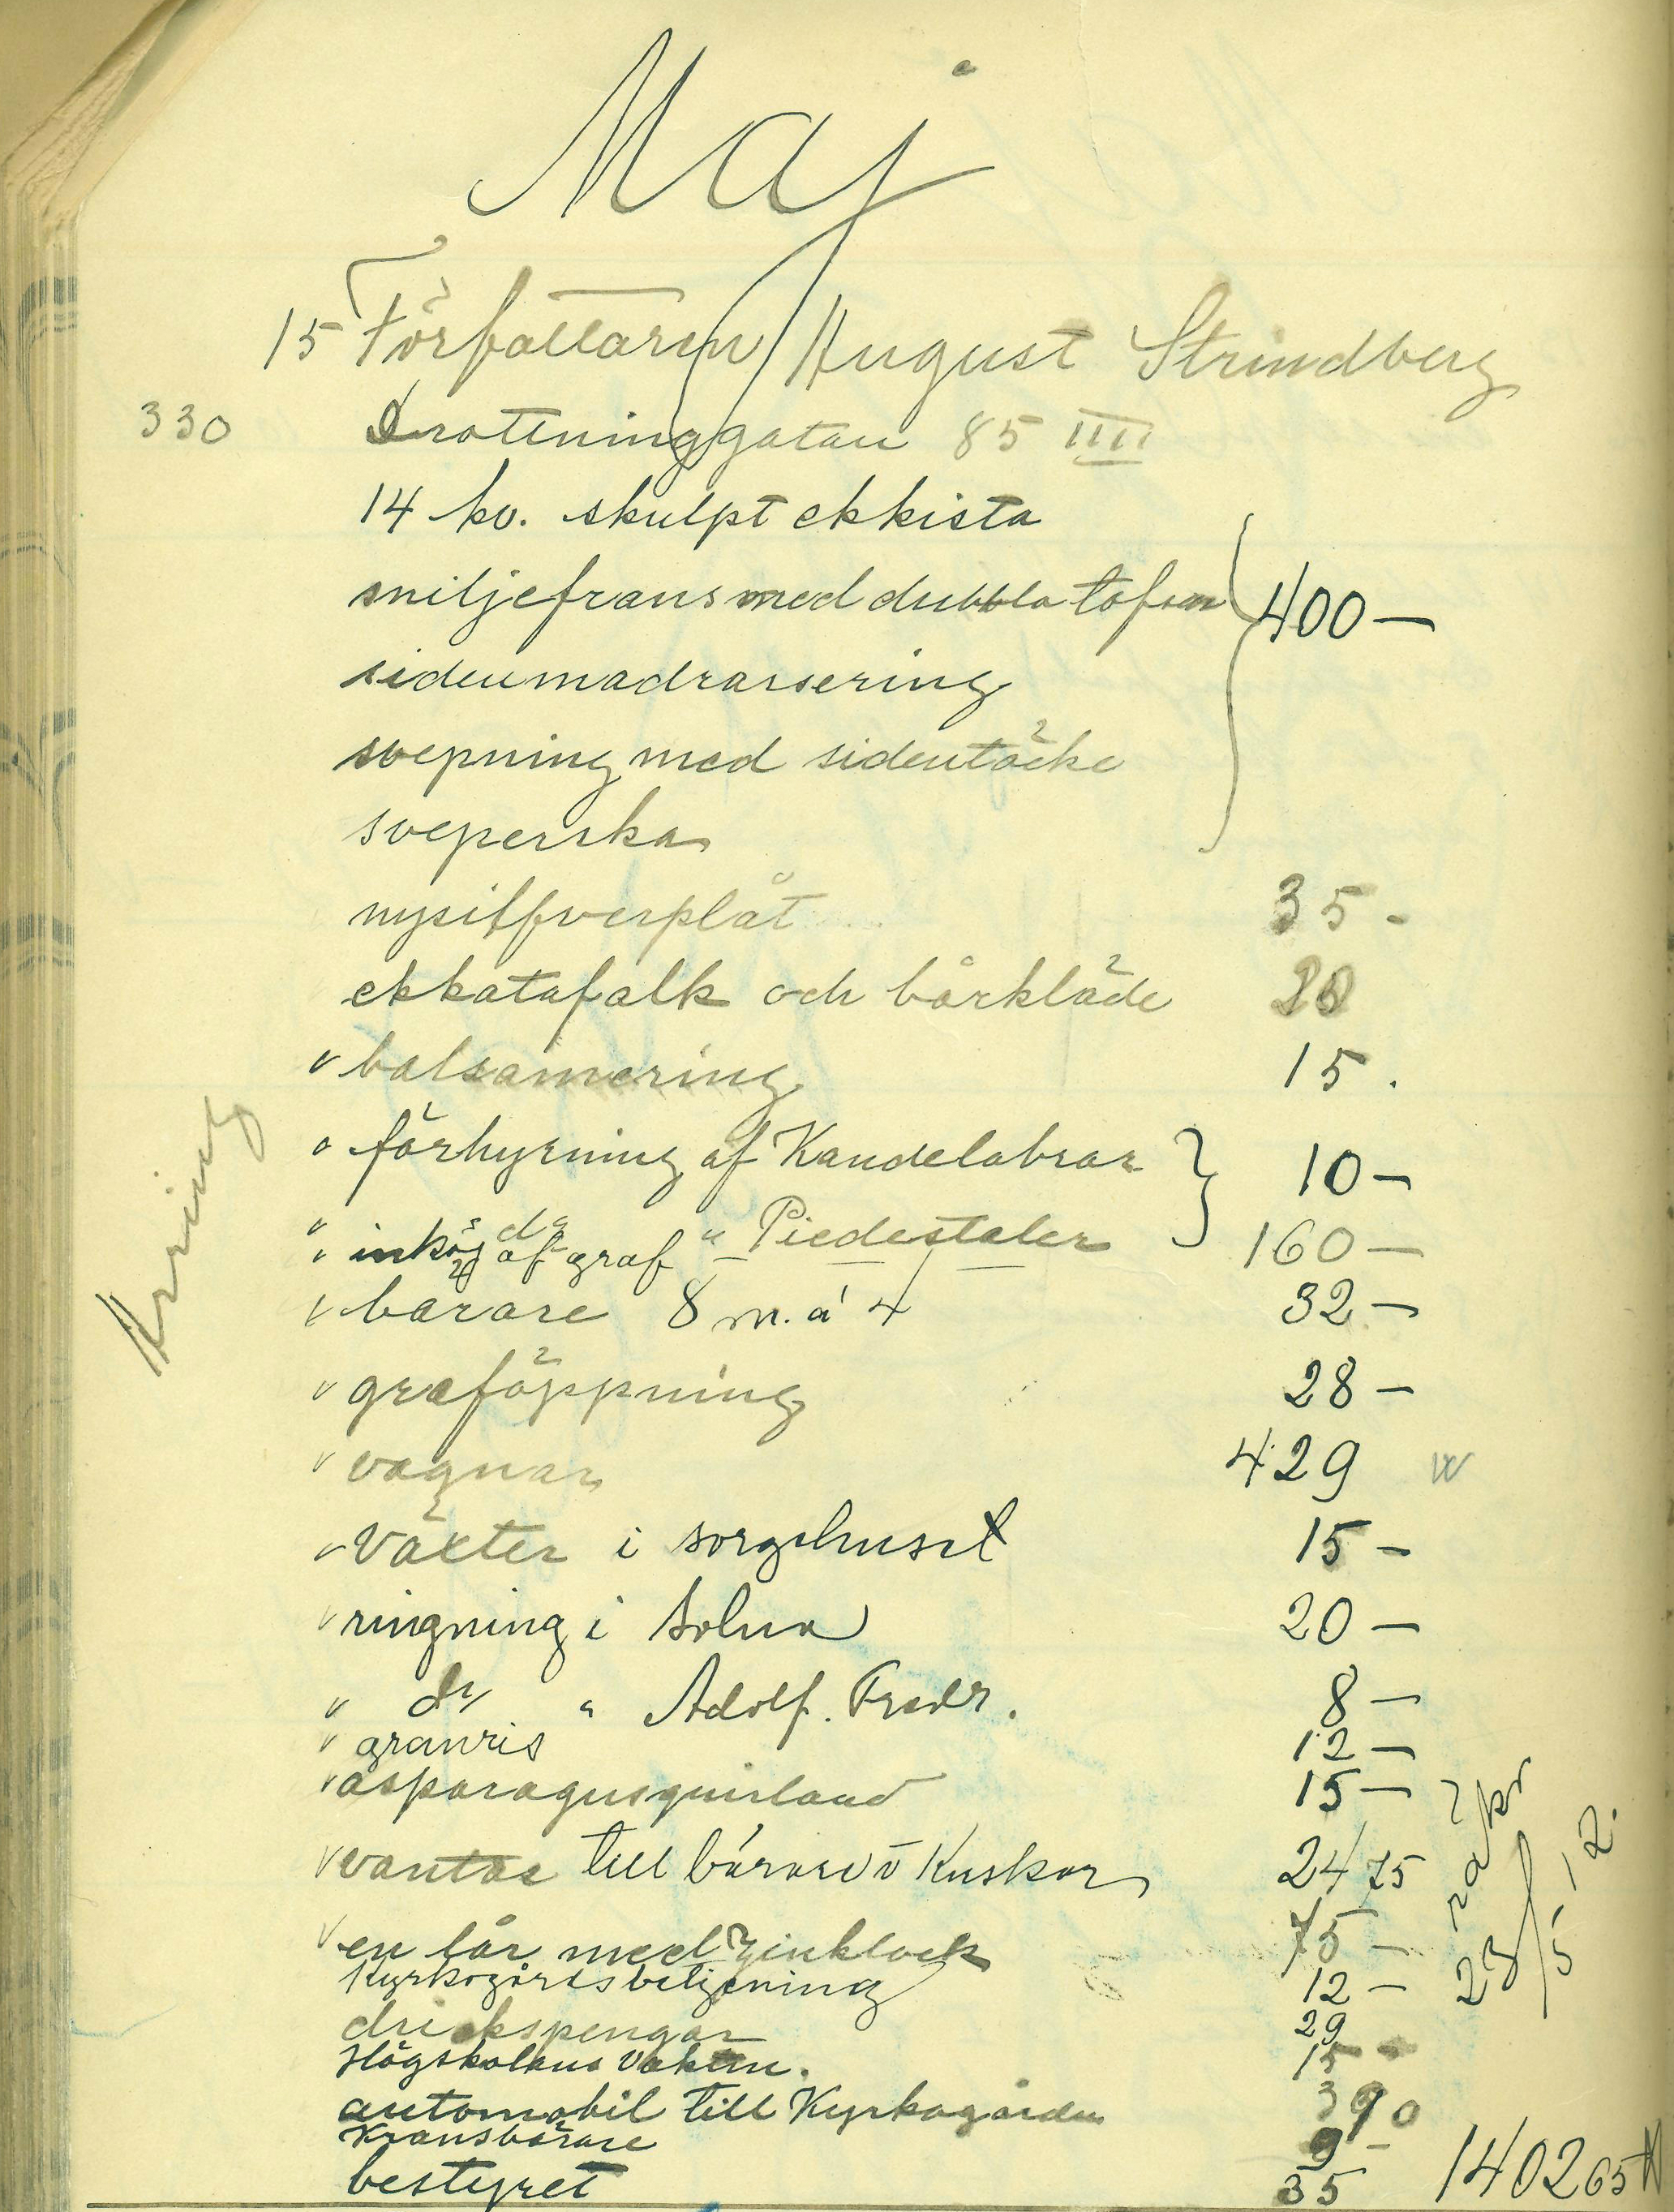 Maj
15 Författaren August Strindberg
330 Drottninggatan 85 IIII
14 kv. skulpt ekkista
sniljefrans med dubbla tofsar } 400 —
sidenmadrassering
svepning med sidentäcke
sveperska
nysilfverplåt 35 -
ekkatafalk och bårkläde 20
balsamering 15 .
förhyrning af Kandelabrar } 10 —
do " Piedestaler
inköp af graf 160 —
bärare 8 m. á 4 32 —
graföppning 28 —
vagnar 429
Växter i sorgehuset 15 —
ringning i Solna 20 —
" do " Adolf. Fredr. 8 —
granris 12 —
asparagusguirland 15 —
vantar till bärare o Kuskar 24 75
en lår med zinklock 75 —
Kyrkogårdsbetjening 12 —
drickspengar 29
Högskolans Vaktm. 15 -
automobil till Kyrkogården 3 90
Kransbärare 9 -
bestyret 35
1402 65
23/5 12.